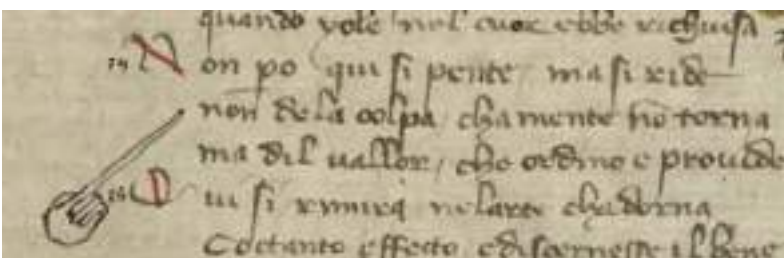 quando vole nel cuor ebbe richiusa
Non po qui si pente ma si ride
non de la colpa chamente nō torna
ma dil vallor / che ordino e provide
Qui si rimira nelarte chadorna
Cotanto effecto / e discerneste il bene